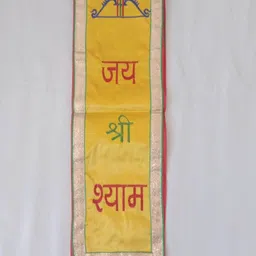 जय
श्री
श्याम